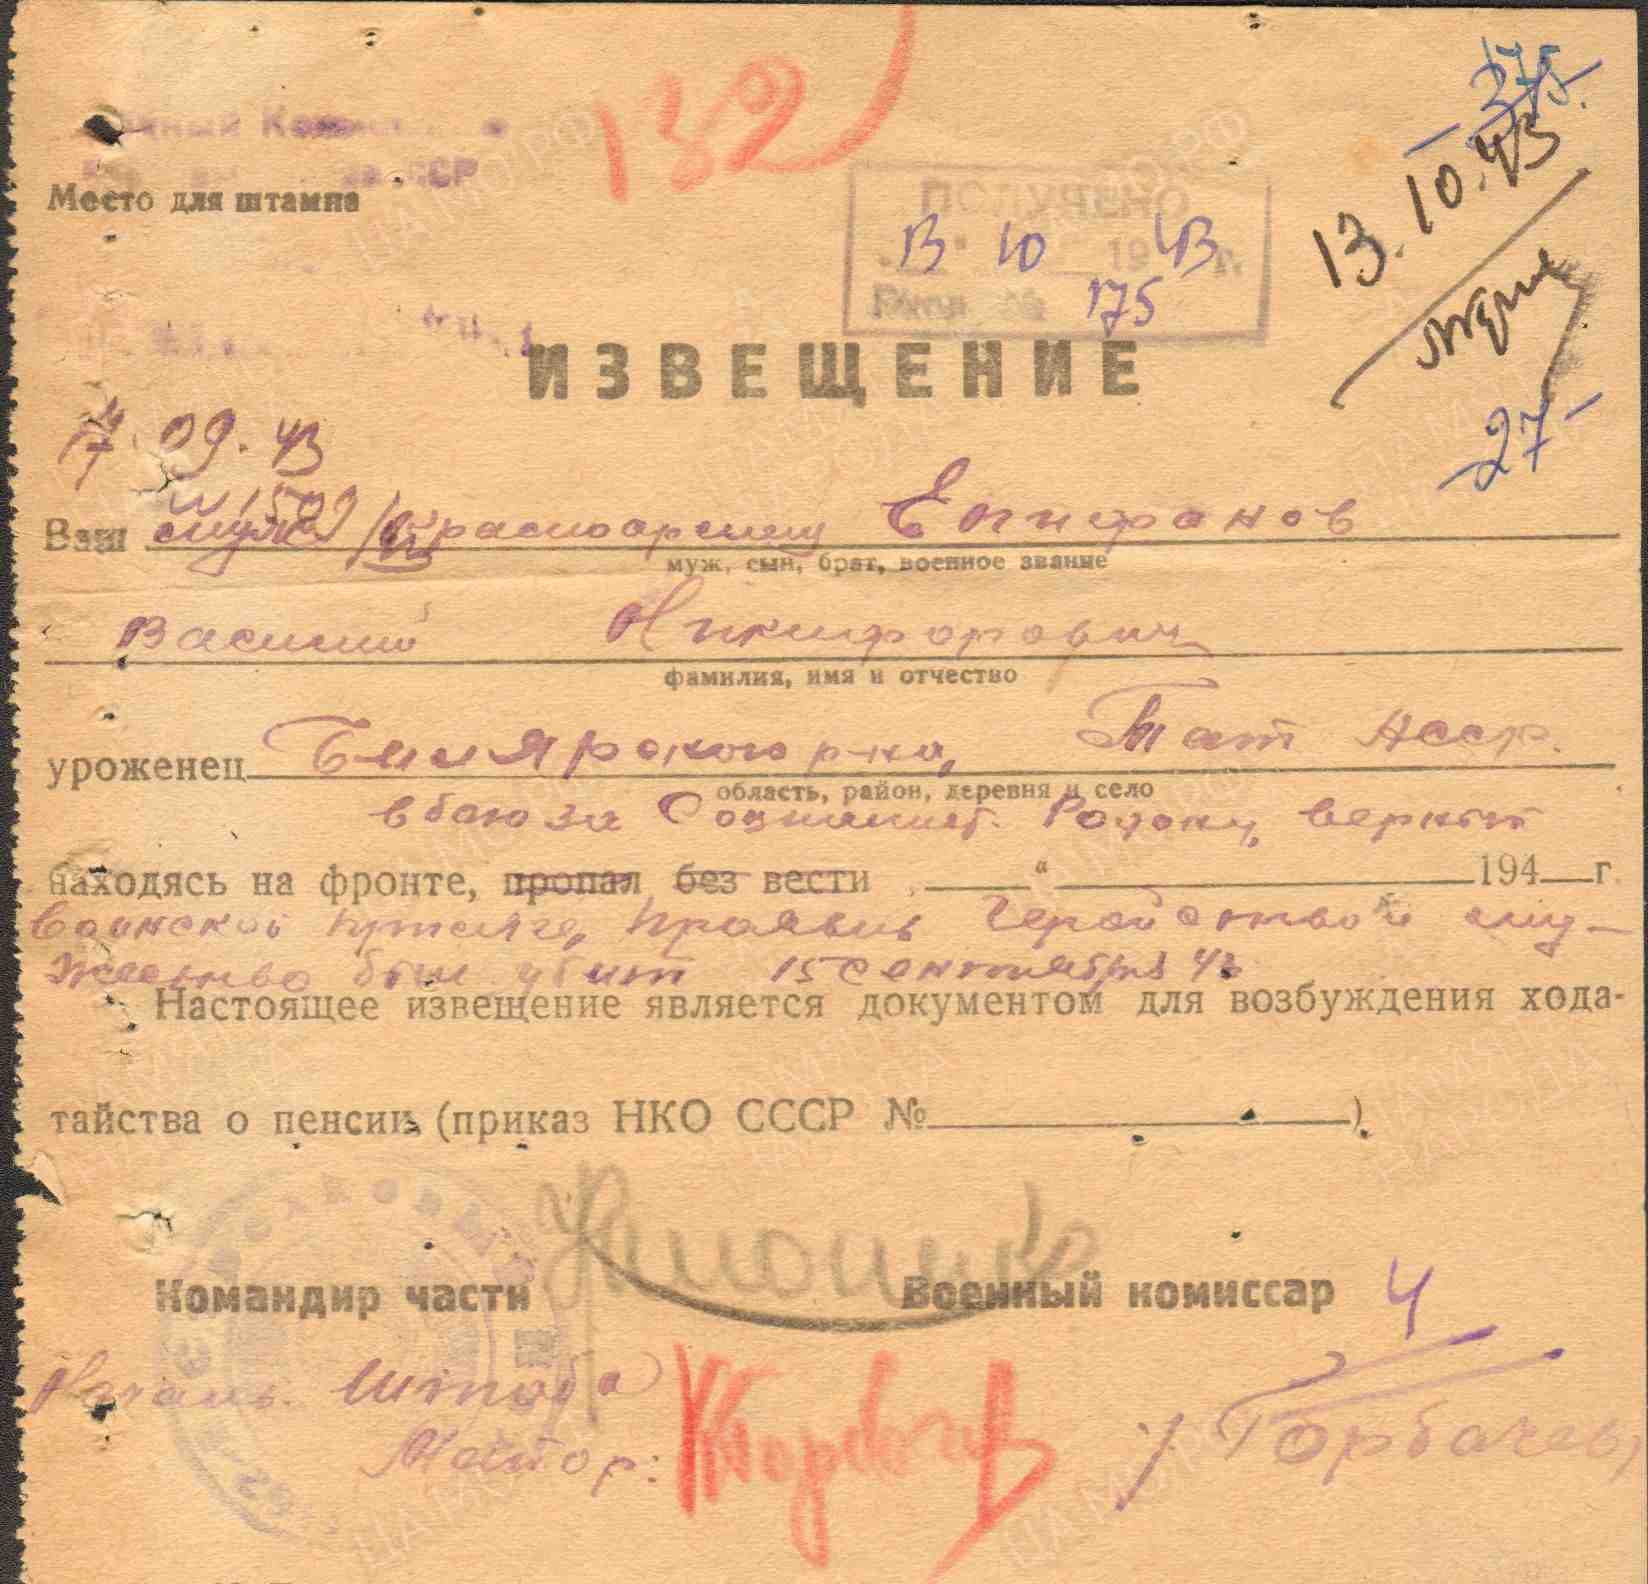 132
175
13.10.43
Место для штампа
ПОЛУЧЕНО
13 10 1943 г.
175
ИЗВЕЩЕНИЕ
27
09.43
Ваш муж красноармеец Епифанов
муж, сын, брат, военное звание
Василий Никифорович
фамилия, имя и отчество
уроженец Билярского р-на, Тат АССР.
область, район, деревня и село
в бою за Социалист. Родину, верный
находясь на фронте, пропал без вести, " 194 г.
воинской присяге, проявив геройство и му-
жество был убит 15 сентября 43
Настоящее извещение является документом для возбуждения хода-
тайства о пенсии (приказ НКО СССР № )
Командир части Военный комиссар
Началь. штаба
Майор:
Горбачев